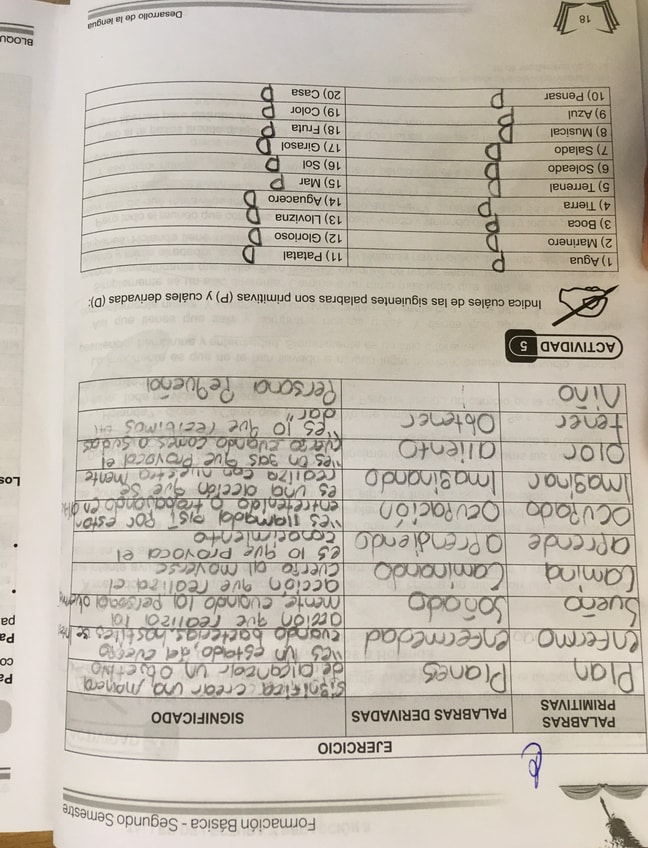 Formación Básica - Segundo Semestre
EJERCICIO
PALABRAS PRIMITIVAS
PALABRAS DERIVADAS
SIGNIFICADO
Plan
Planes
significa crear una manera
de alcanzar un objetivo
enfermo
enfermedad
es un estado del cuerpo
cuando bacterias hostiles se
Sueño
Soñado
acción que realiza la
mente, cuando la persona
Camina
Caminando
acción, que realiza el
cuerpo al moverse
aprende
aprendiendo
es lo que provoca el
conocimiento
ocupado
ocupación
es llamada así por estar
entretenido o trabajando en
Imaginar
Imaginando
es una acción que se
realiza con nuestra mente
olor
aliento
es un gas que provoca el
cuerpo cuando comes o sudas
tener
Obtener
"es lo que recibimos
dar"
Niño
Persona Pequeña
ACTIVIDAD 5
Indica cuáles de las siguientes palabras son primitivas (P) y cuáles derivadas (D):
1) Agua P
2) Marinero D
3) Boca P
4) Tierra P
5) Terrenal D
6) Soleado D
7) Salado D
8) Musical D
9) Azul P
10) Pensar P
11) Patatal D
12) Glorioso D
13) Llovizna D
14) Aguacero D
15) Mar P
16) Sol P
17) Girasol D
18) Fruta P
19) Color P
20) Casa P
18
Desarrollo de la lengua
BLOQU
Los
pa
Pa
co
Pa